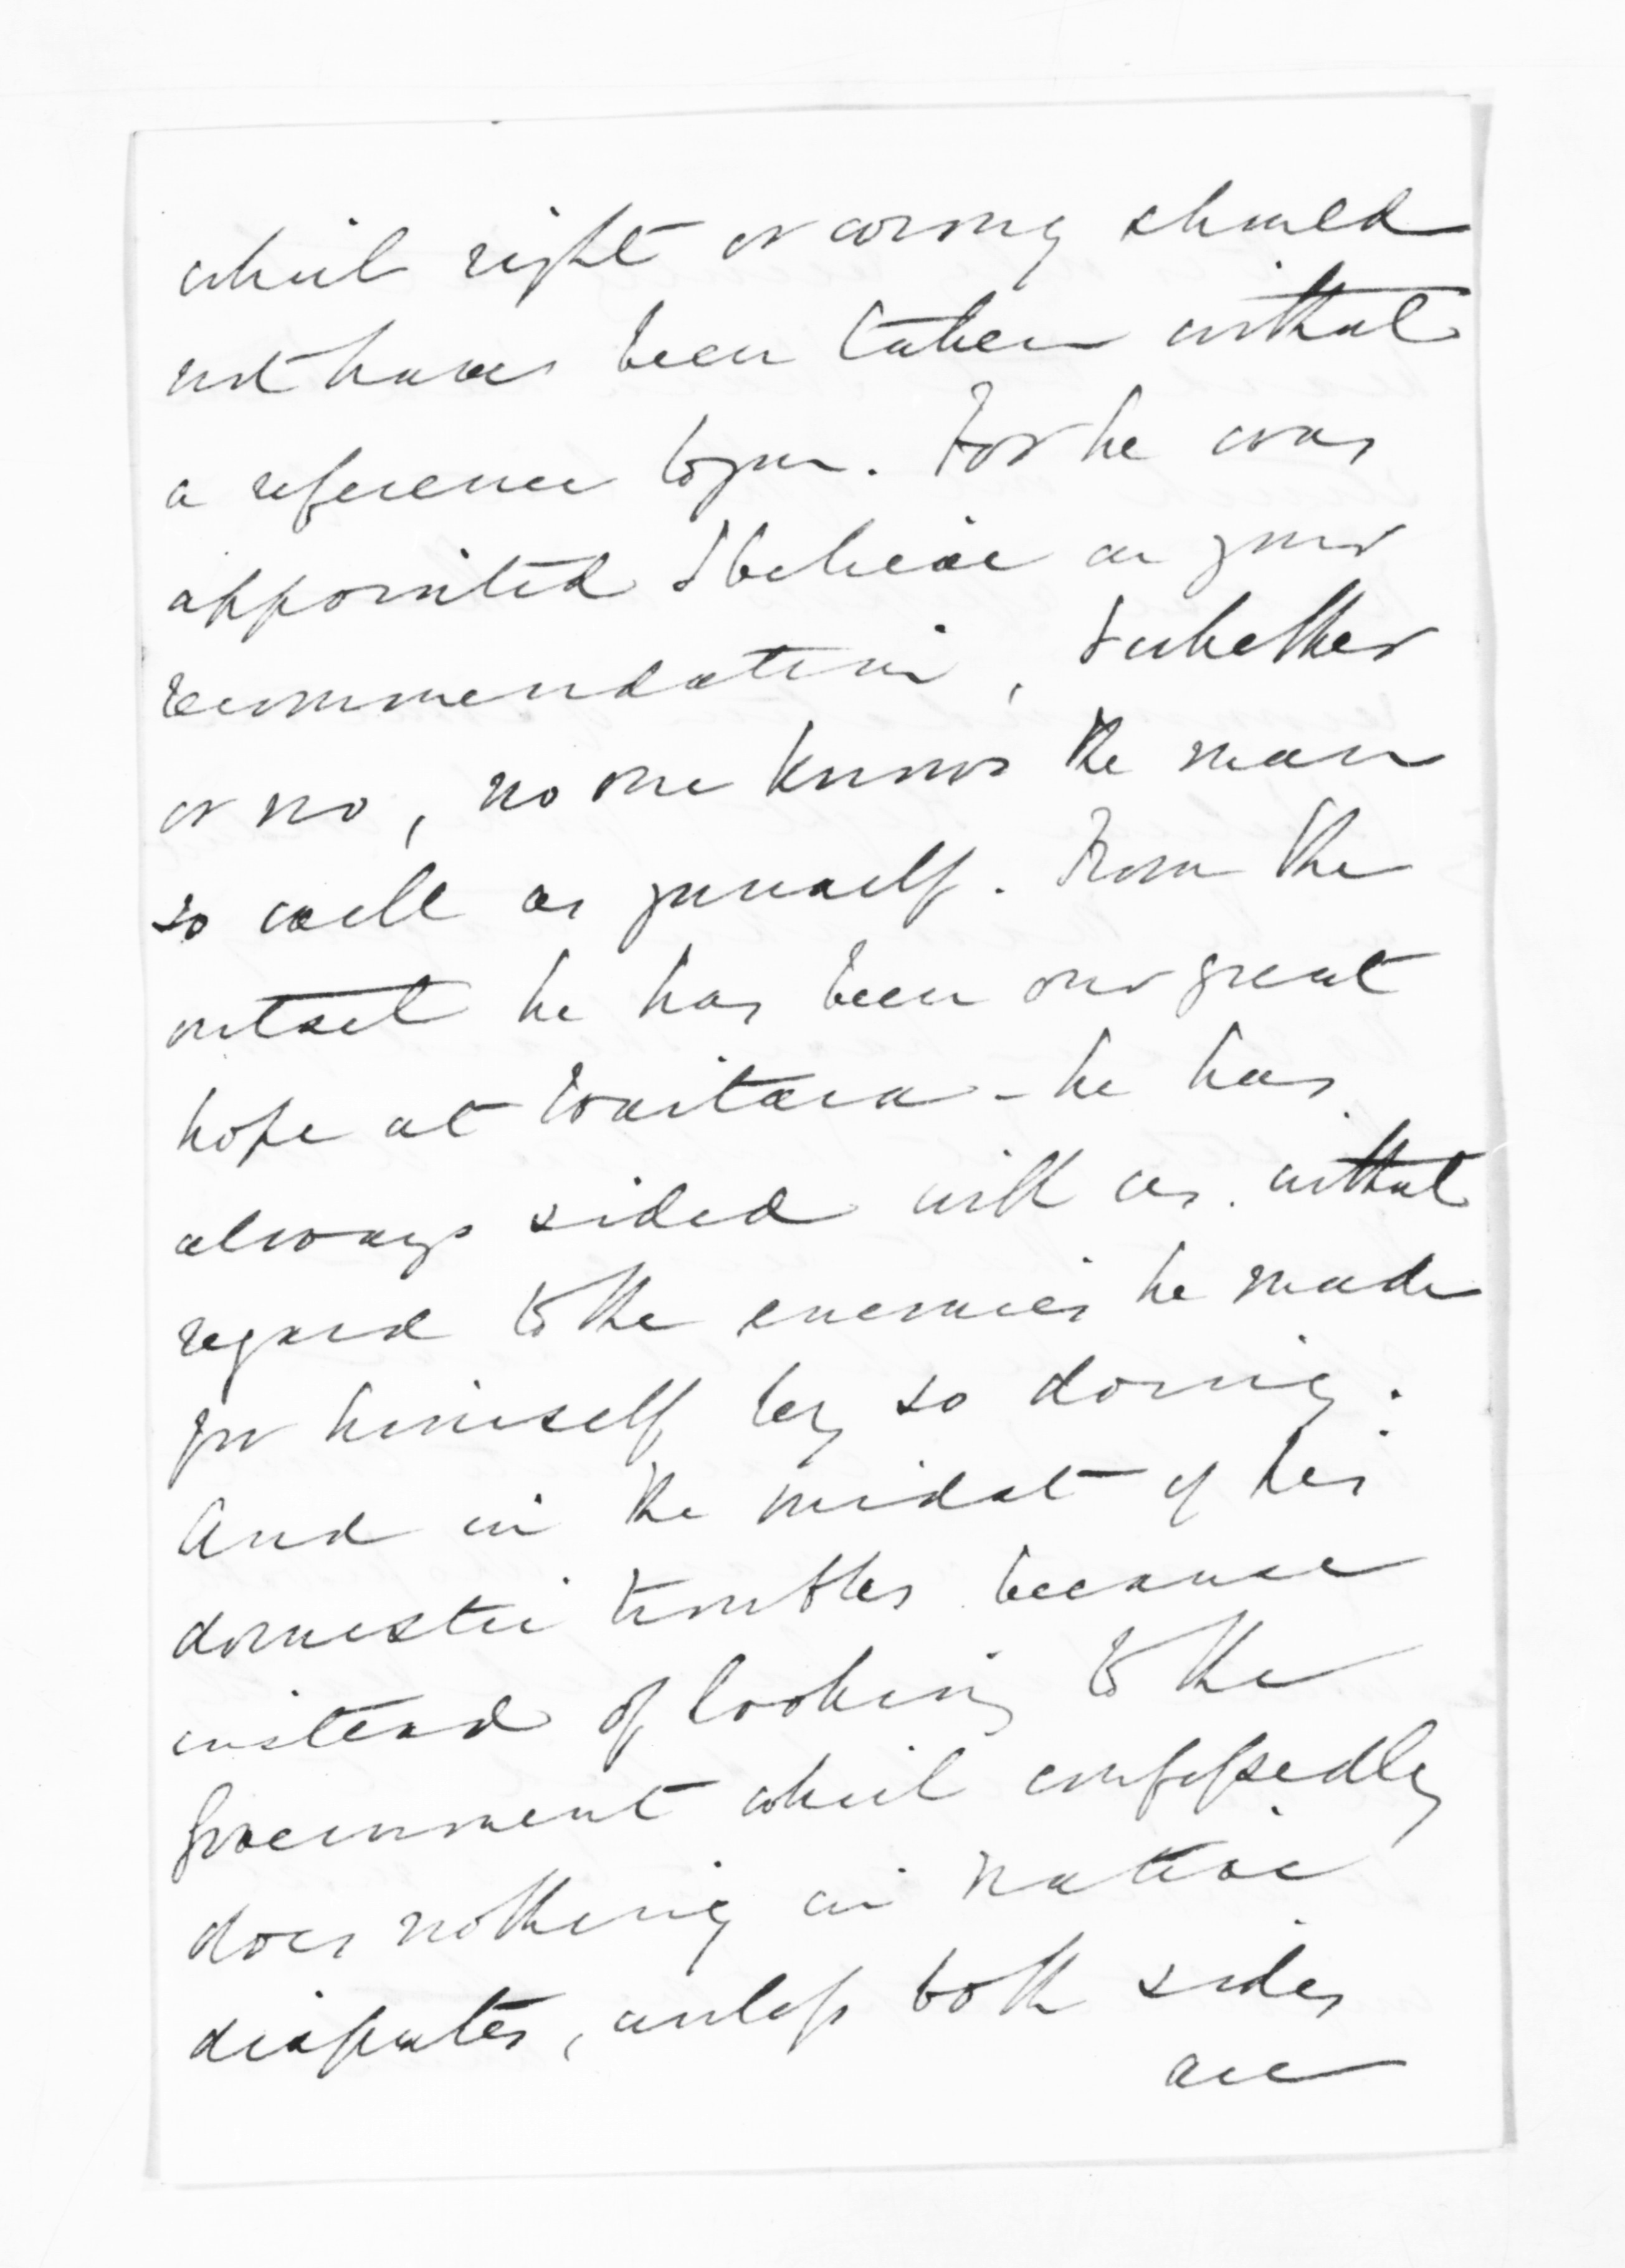 which right or wrong should
not have been taken without
a reference to you. For he was
appointed I believe on your
recommendation, & whether
or no, no one knows the man
so well as yourself. From the
outset he has been our great
hope at Waitara - he has
always sided with us without
regard to the enemies he made
for himself by so doing.
And in the midst of his
domestic troubles because
instead of looking to the
Government which confessedly
does nothing in native
disputes, unless both sides
are